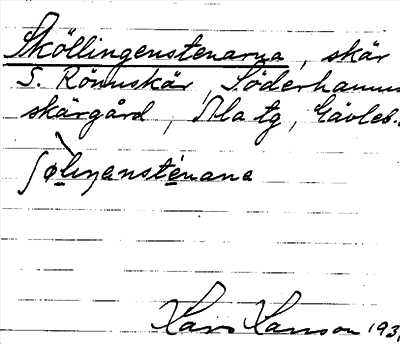 Sköllingenstenarna, skär
S. Rönnskär, Söderhamns
skärgård, Ala tg, Gävleb.
ʃø̱liŋenste̱nana
Hans Hansson 193